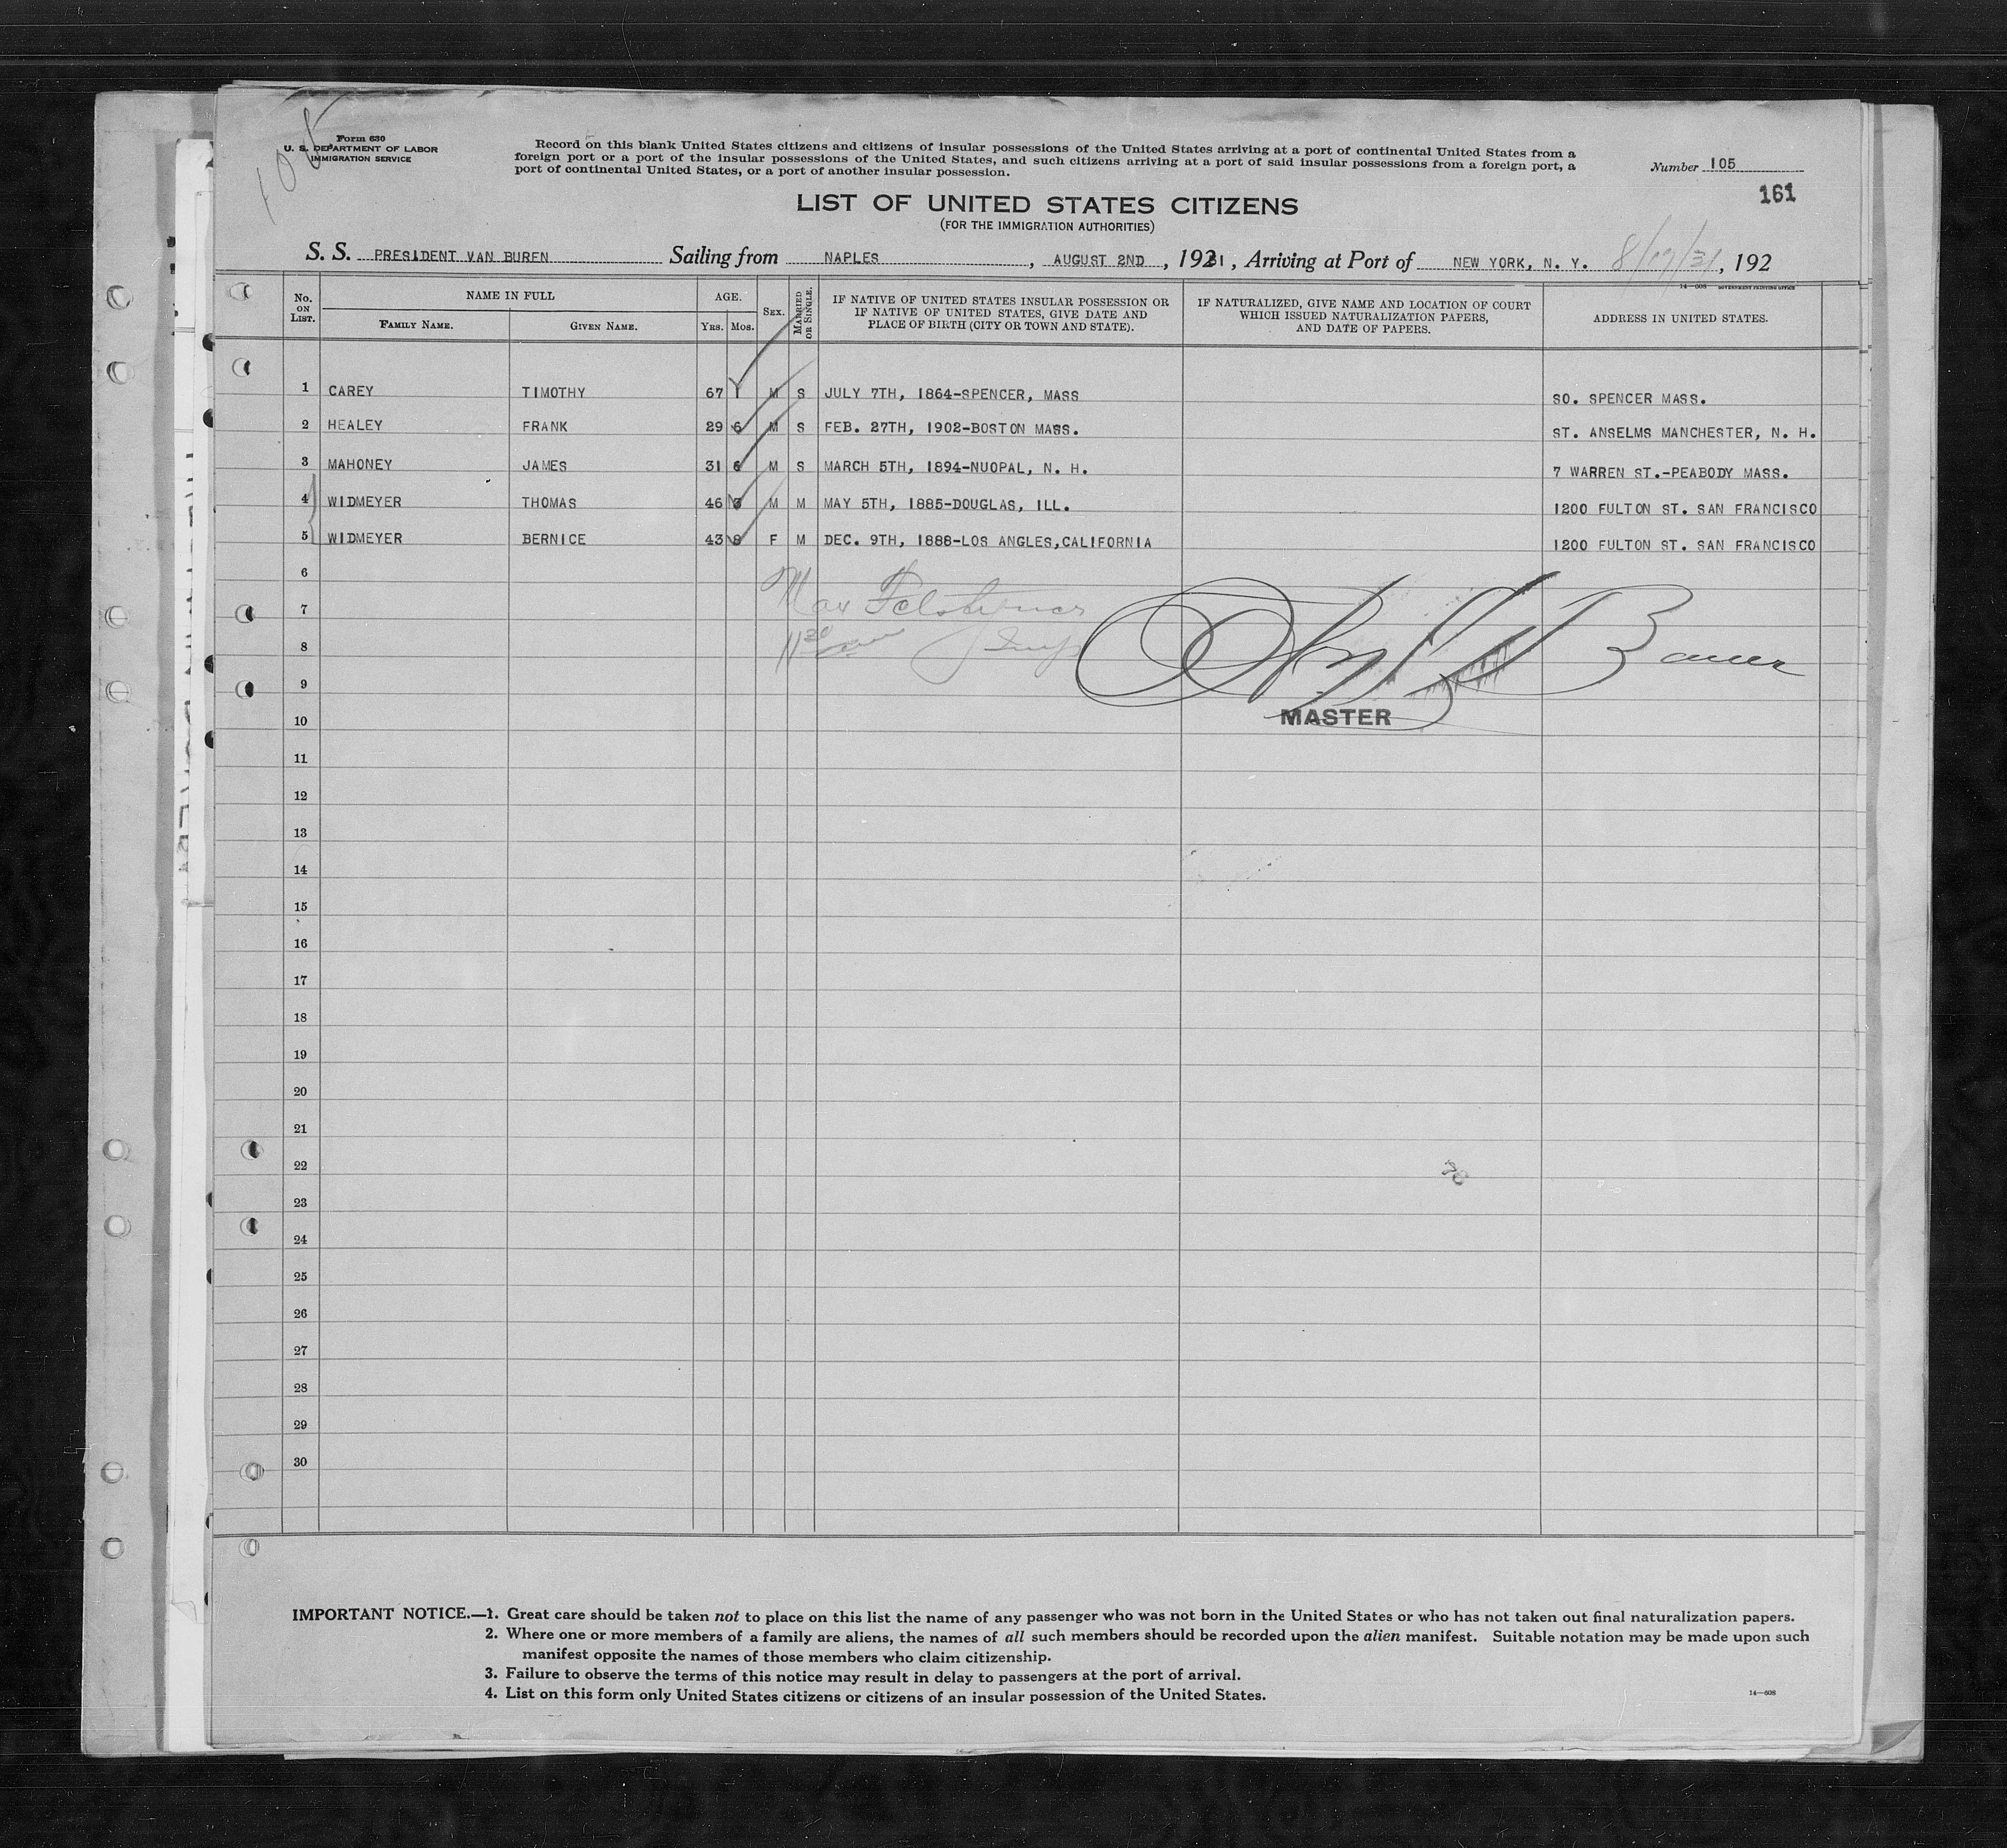 Form 630
U. S. DEPARTMENT OF LABOR
IMMIGRATION SERVICE
Record on this blank United States citizens and citizens of insular possessions of the United States arriving at a port of continental United States from a
foreign port or a port of the insular possessions of the United States, and such citizens arriving at a port of said insular possessions from a foreign port, a
port of continental United States, or a port of another insular possession.
Number 105
161
LIST OF UNITED STATES CITIZENS
(FOR THE IMMIGRATION AUTHORITIES)
S. S. PRESIDENT VAN BUREN Sailing from NAPLES, AUGUST 2ND, 1931, Arriving at Port of NEW YORK, N. Y. 8/17/31, 192
14—608 GOVERNMENT PRINTING OFFICE
No. ON LIST. NAME IN FULL AGE. SEX. MARRIED OR SINGLE. IF NATIVE OF UNITED STATES INSULAR POSSESSION OR IF NATIVE OF UNITED STATES, GIVE DATE AND PLACE OF BIRTH (CITY OR TOWN AND STATE). IF NATURALIZED, GIVE NAME AND LOCATION OF COURT WHICH ISSUED NATURALIZATION PAPERS, AND DATE OF PAPERS. ADDRESS IN UNITED STATES.
FAMILY NAME. GIVEN NAME. YRS. MOS.
1 CAREY TIMOTHY 67 1 M S JULY 7TH, 1864-SPENCER, MASS SO. SPENCER MASS.
2 HEALEY FRANK 29 6 M S FEB. 27TH, 1902-BOSTON MASS. ST. ANSELMS MANCHESTER, N. H.
3 MAHONEY JAMES 31 6 M S MARCH 5TH, 1894-NUOPAL, N. H. 7 WARREN ST.-PEABODY MASS.
4 WIDMEYER THOMAS 46 3 M M MAY 5TH, 1885-DOUGLAS, ILL. 1200 FULTON ST. SAN FRANCISCO
5 WIDMEYER BERNICE 43 8 F M DEC. 9TH, 1888-LOS ANGLES,CALIFORNIA 1200 FULTON ST. SAN FRANCISCO
6
7 Max
8
Bauer
9
10 MASTER
11
12
13
14
15
16
17
18
19
20
21
22
23
24
25
26
27
28
29
30
IMPORTANT NOTICE.—1. Great care should be taken not to place on this list the name of any passenger who was not born in the United States or who has not taken out final naturalization papers.
2. Where one or more members of a family are aliens, the names of all such members should be recorded upon the alien manifest. Suitable notation may be made upon such
manifest opposite the names of those members who claim citizenship.
3. Failure to observe the terms of this notice may result in delay to passengers at the port of arrival.
4. List on this form only United States citizens or citizens of an insular possession of the United States.
14—608